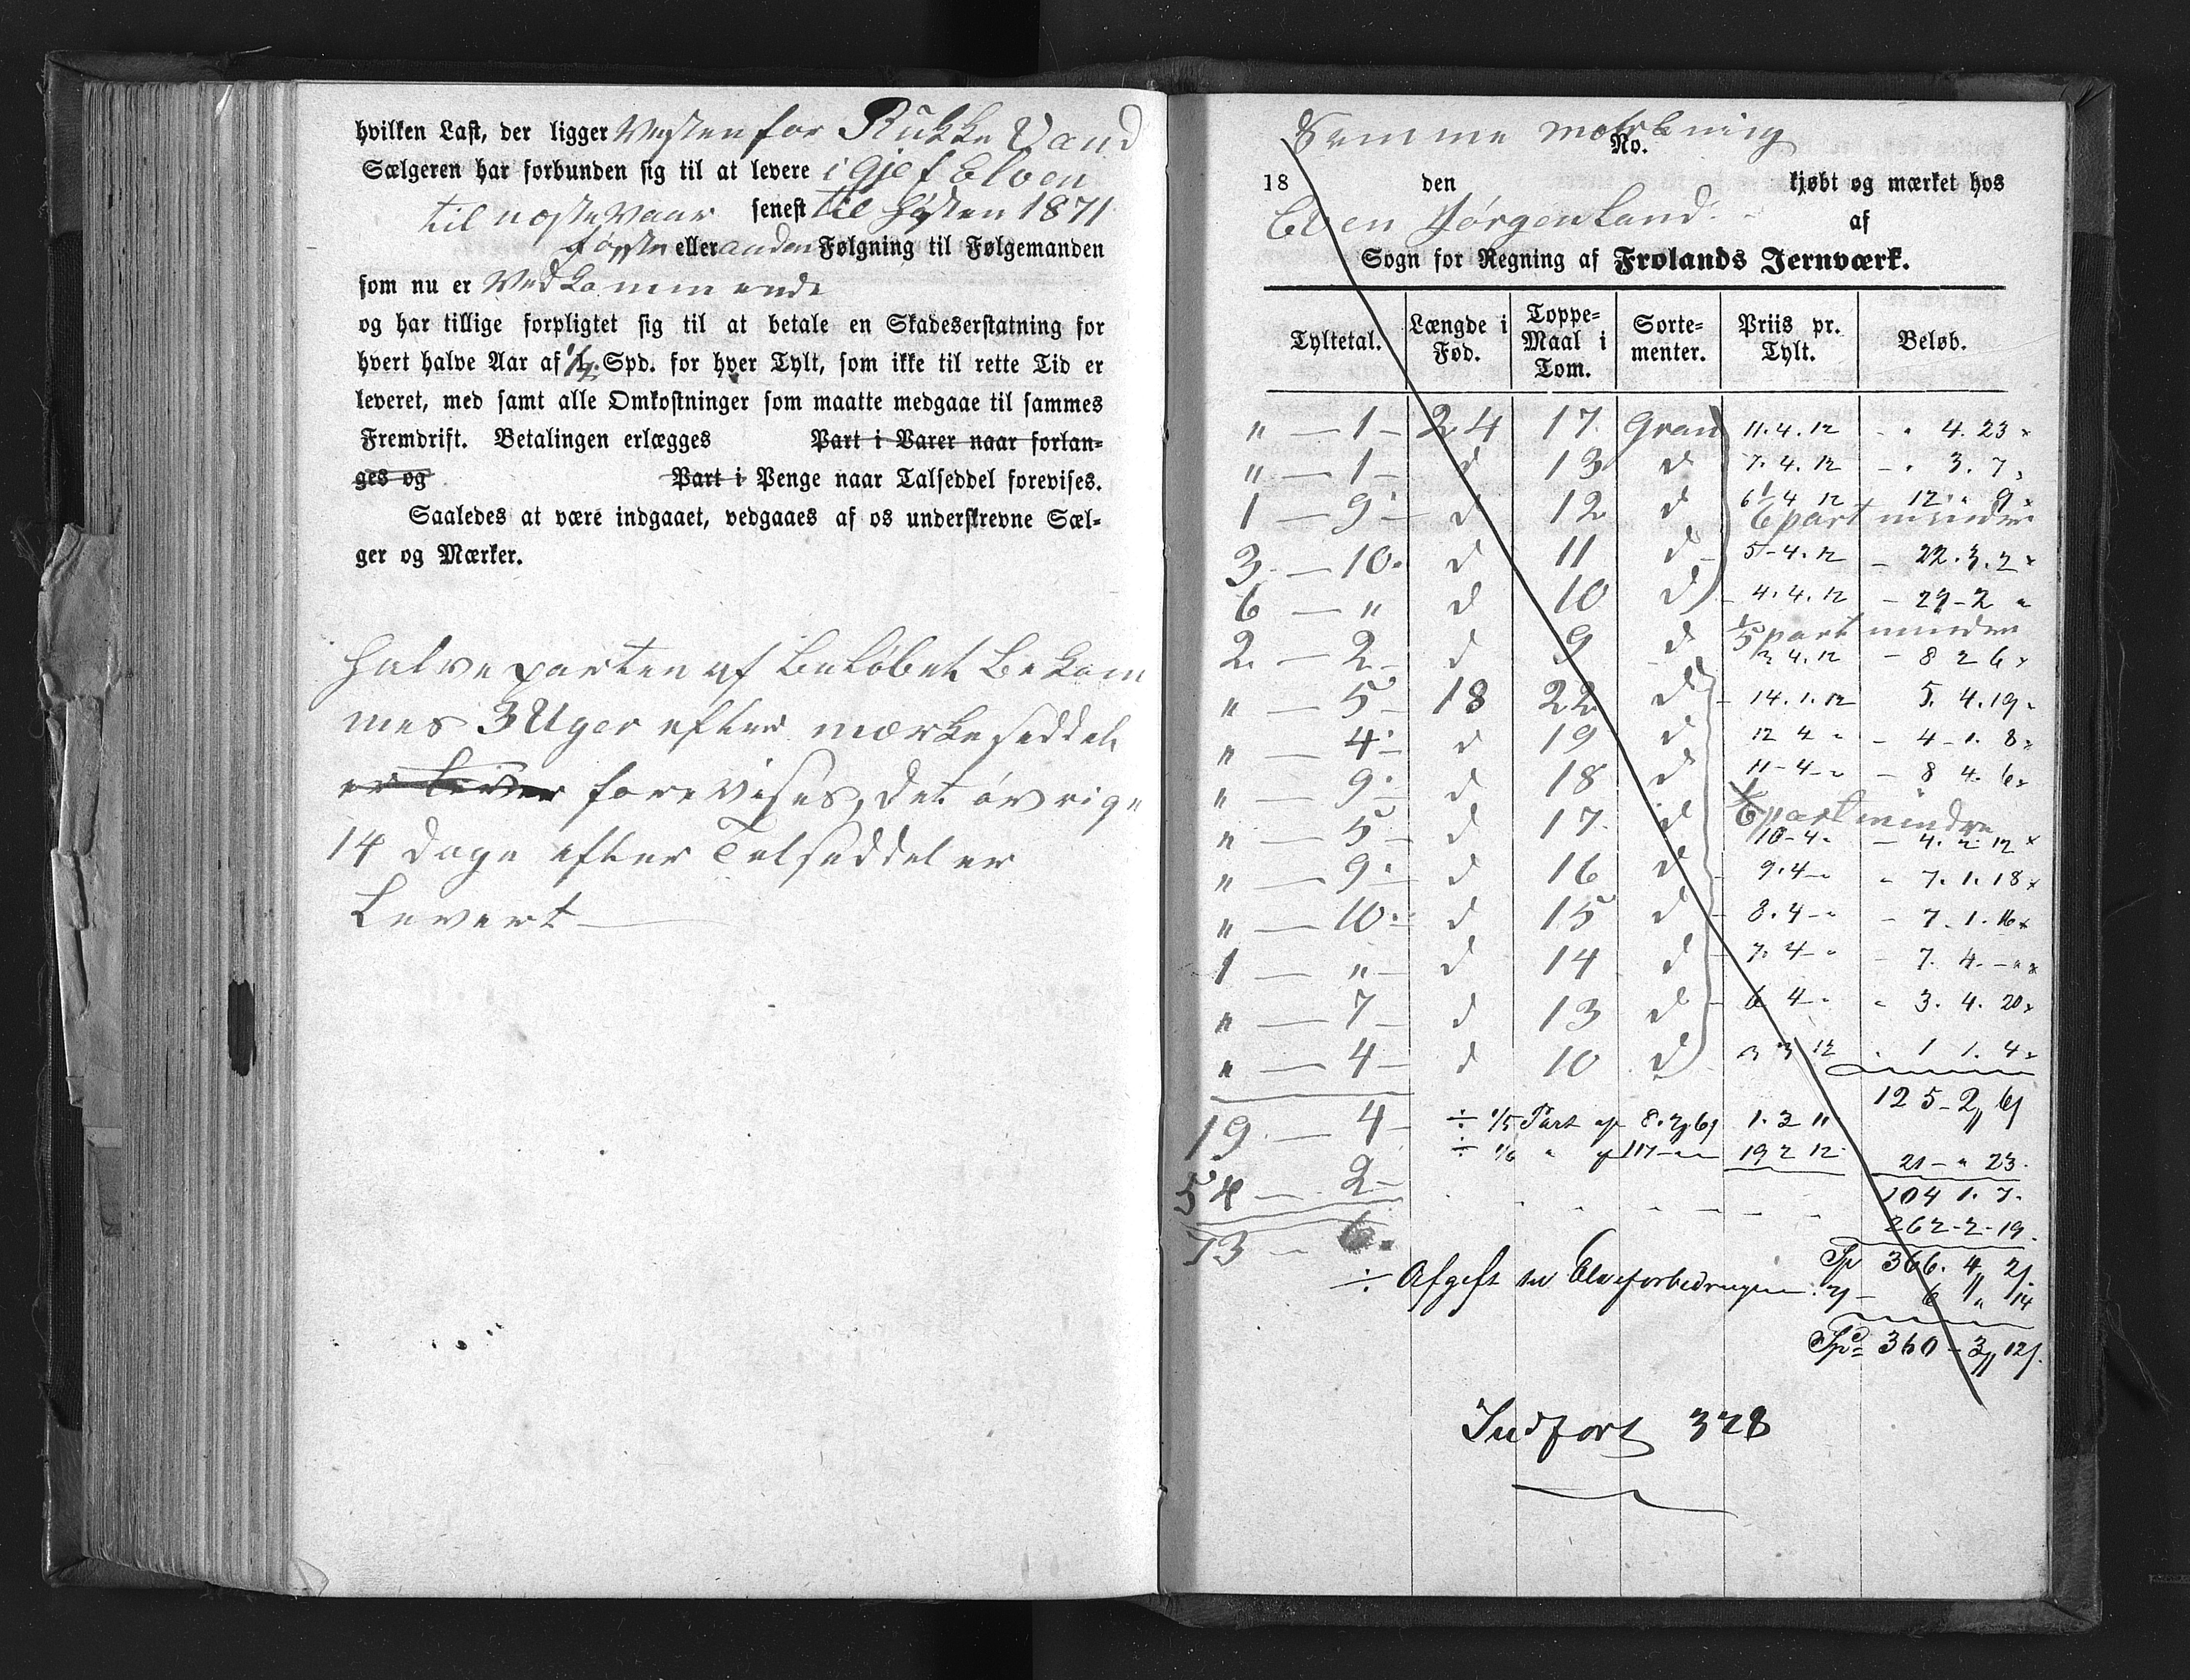 hvilken Last, der ligger Westen for Rukke Vand
Sælgeren har forbunden sig til at levere i Gjef Elven
til næste Vaar senest til Høsten 1871
første eller anden Følgning til Følgemanden
som nu er Vedkommende
og har tillige forpligtet sig til at betale en Skadeserstatning for
hvert halve Aar af 1/4 Spd. for hver Tylt, som ikke til rette Tid er
leveret, med samt alle Omkostninger som maatte medgaae til sammes
Fremdrift. Betalingen erlægges Part i Varer naar forlan-
ges og Part i Penge naar Talseddel forevises.
Saaledes at være indgaaet, vedgaaes af os underskrevne Sæl-
ger og Mærker.
Halveparten af Beløbet Bekom
mes 3 Uger efter mærkeseddel
er forevises, det øvrige
14 Dage efter Talseddel er
Levert
Semme mærkning
No.
18 den kjøbt og mærket hos
Even Jørgen Land af
Sogn for Regning af Frolands Jernværk.
Tyltetal. Længde i Fod. Toppe-Maal i Tom. Sorte-menter. Priis pr. Tylt. Beløb.
" — 1 — 24 17 Gran 11. 4. 12 - " 4. 23
" — 1 — d 13 d 7. 4. 12 - " 3. 7
1 — 9 — d 12 d 6 1/4 12 12 " 9
6part mindre
3 — 10 d 11 d 5-4.12 - 22. 3. 2
6 — " d 10 d 4. 4. 12 - 29-2 "
1/5 part mindre
2 — 2 — d 9 d 3 4. 12 - 8 2 6
" — 5 — 18 22 d 14. 1. 12 5. 4. 19
" — 4 — d 19 d 12 4 " - 4-1. 8
" — 9 — d 18 d 11-4-" - 8 4. 6
1/6 part mindre
" — 5 — d 17 d 10-4- - 4. 2. 12
" — 9 — d 16 d 9. 4-" - 7. 1. 18
" — 10 — d 15 d 8. 4-" - 7. 1. 16
1 — " — d 14 d 7. 4-" 7. 4. - "
" — 7 — d 13 d 6 4-" - 3. 4. 20
" — 4 — d 10 d 3 3 12 1 1. 4
125-2 6
19 — 4 ÷ 1/5 Part af 8. 2. 6 1. 3 11
÷ 1/6 " af 117-"" 19 2 12 21 - " 23
54 — 2 104 1. 7.
262-2-19.
73 — 6 Sp 366. 4 2
÷ Afgift til Elveforbedringen 6 " 14
Spd 360-3 12
Indført 328